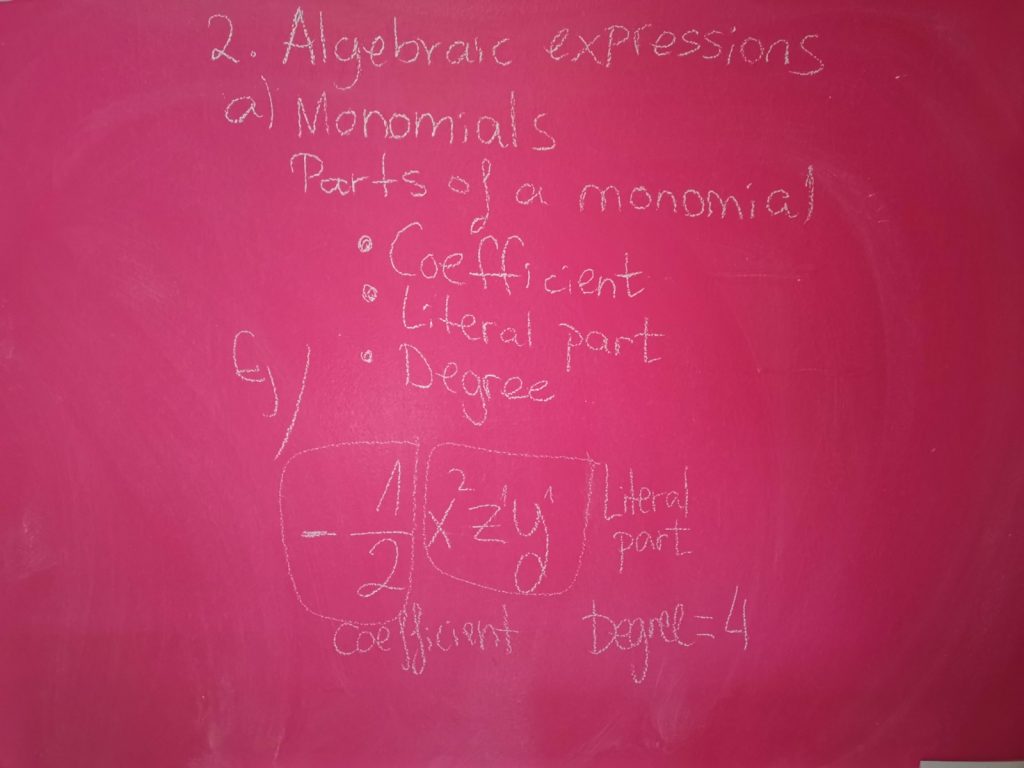 2. Algebraic expressions
a) Monomials
Parts of a monomial
• Coefficient
• Literal part
• Degree
Eg/
-1/2 x²z¹y¹ Literal part
coefficient Degree=4